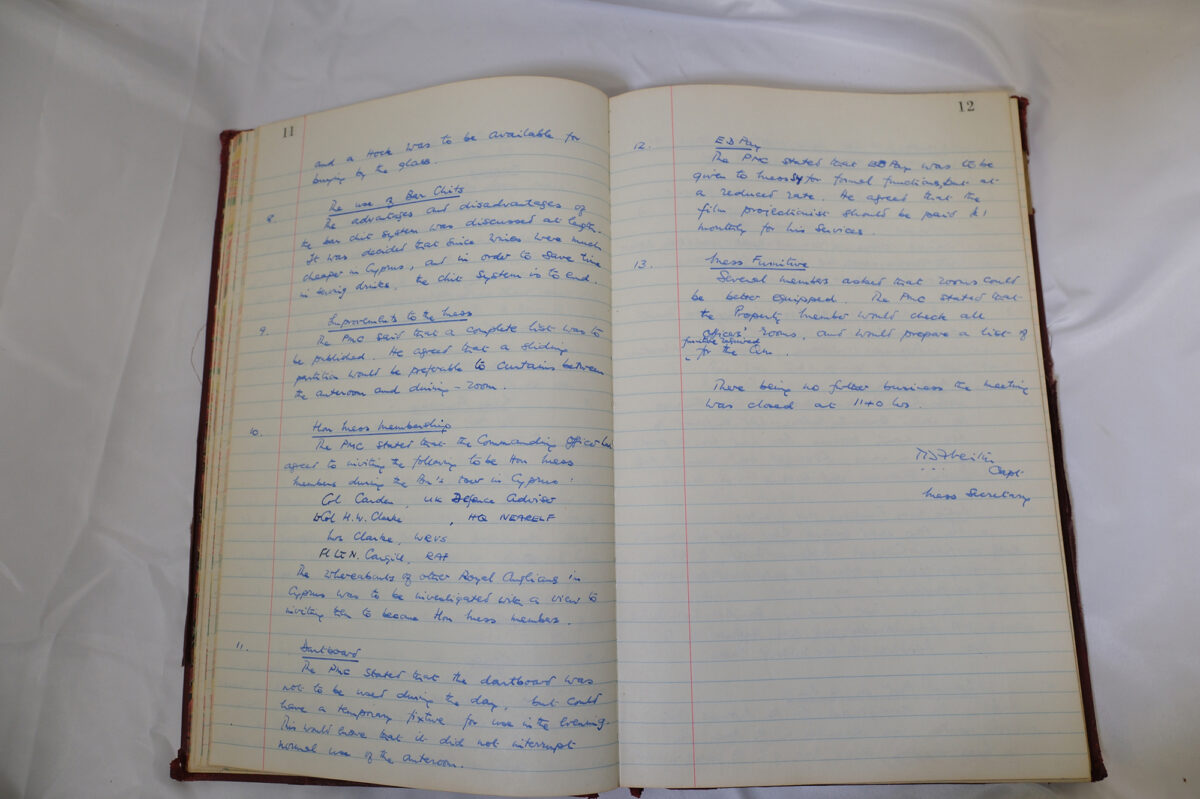 11
and a Hock was to be available for
buying by the glass.
8. The use of Bar Chits
The advantages and disadvantages of
the bar chit system was discussed at length.
It was decided that since wines were much
cheaper in Cyprus, and in order to save time
in serving drinks, the chit system is to end.
9. Improvements to the Mess
The PMC said that a complete list was to
be published. He agreed that a sliding
partition would be preferable to curtains between
the anteroom and dining-room.
10. Hon Mess Membership
The PMC stated that the Commanding Officer had
agreed to inviting the following to be Hon Mess
members during the Bn's tour in Cyprus:
Col Carden, UK Defence Adviser
Lt Col H.W. Clarke, HQ NEARELF
Mrs Clarke, WRVS
Fl Lt N. Cargill, RAF
The whereabouts of other Royal Anglians in
Cyprus was to be investigated with a view to
inviting them to become Hon Mess members.
11. Dartboard
The PMC stated that the dartboard was
not to be used during the day, but could
have a temporary fixture for use in the evening.
This would ensure that it did not interrupt
normal use of the anteroom.
12
12. ED Pay
The PMC stated that ED Pay was to be
given to Mess for formal functions, but at
a reduced rate. He agreed that the
film projectionist should be paid £1
monthly for his services.
13. Mess Furniture
Several members asked that rooms could
be better equipped. The PMC stated that
the Property Member would check all
officers' rooms, and would prepare a list of
furniture required
for the
There being no further business the meeting
was closed at 1140 hrs.
Capt
Mess Secretary